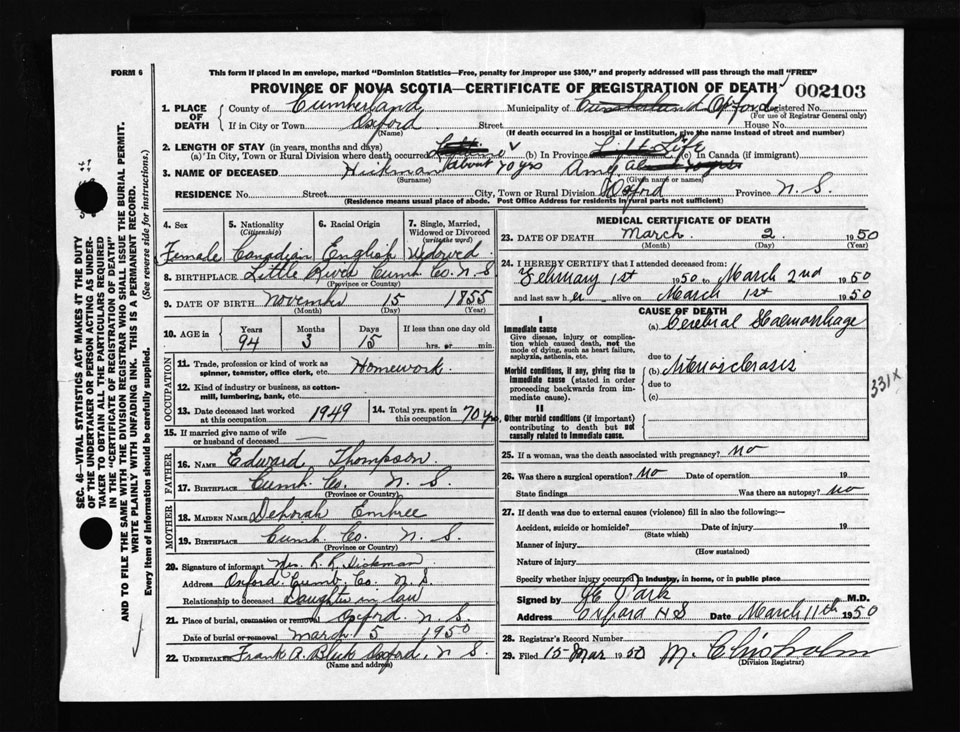 FORM 6
This form if placed in an envelope, marked "Dominion Statistics—Free, penalty for improper use $300," and properly addressed will pass through the mail "FREE"
PROVINCE OF NOVA SCOTIA—CERTIFICATE OF REGISTRATION OF DEATH 002103
1. PLACE OF DEATH
County of Cumberland Municipality of Cumberland Oxford Registered No.
(For use of Registrar General only)
If in City or Town Oxford Street House No.
(Name) (If death occurred in a hospital or institution, give the name instead of street and number)
2. LENGTH OF STAY (in years, months and days)
(a) In City, Town or Rural Division where death occurred about 70 yrs (b) In Province Life (c) in Canada (if immigrant)
3. NAME OF DECEASED Hickman Amy
(Surname) (Given name or names)
RESIDENCE No. Street City, Town or Rural Division Oxford Province N. S.
(Residence means usual place of abode. Post Office Address for residents in rural parts not sufficient)
4. Sex 5. Nationality (Citizenship) 6. Racial Origin 7. Single, Married, Widowed or Divorced (write the word)
Female Canadian English Widowed
8. BIRTHPLACE Little River Cumb. Co. N. S
(Province or Country)
9. DATE OF BIRTH November 15 1855
(Month) (Day) (Year)
10. AGE in Years Months Days If less than one day old
94 3 15 hrs. or min.
OCCUPATION
11. Trade, profession or kind of work as spinner, teamster, office clerk, etc. Homework.
12. Kind of industry or business, as cotton-mill, lumbering, bank, etc.
13. Date deceased last worked at this occupation 1949 14. Total yrs. spent in this occupation 70 yrs
15. If married give name of wife or husband of deceased
FATHER
16. NAME Edward Thompson
17. BIRTHPLACE Cumb. Co. N. S.
(Province or Country)
MOTHER
18. MAIDEN NAME Deborah Embree
19. BIRTHPLACE Cumb. Co. N. S.
(Province or Country)
20. Signature of informant Mrs. R. R. Hickman
Address Oxford, Cumb. Co. N. S.
Relationship to deceased Daughter in law
21. Place of burial, cremation or removal Oxford N. S.
Date of burial or removal March 5 1950
22. UNDERTAKER Frank A. Oxford, N. S.
(Name and address)
MEDICAL CERTIFICATE OF DEATH
23. DATE OF DEATH March 2 1950
(Month) (Day) (Year)
24. I HEREBY CERTIFY that I attended deceased from:
February 1st 1950 to March 2nd 1950
and last saw h er alive on March 1st 1950
CAUSE OF DEATH
I
Immediate cause
Give disease, injury or complication which caused death, not the mode of dying, such as heart failure, asphyxia, asthenia, etc.
(a) Cerebral Haemorrhage
due to
Morbid conditions, if any, giving rise to immediate cause (stated in order proceeding backwards from immediate cause).
(b) Arteriosclerosis
due to
(c)
331X
II
Other morbid conditions (if important) contributing to death but not causally related to immediate cause.
25. If a woman, was the death associated with pregnancy? no
26. Was there a surgical operation? no Date of operation 19
State findings Was there an autopsy? no
27. If death was due to external causes (violence) fill in also the following:—
Accident, suicide or homicide? Date of injury 19
(State which)
Manner of injury
(How sustained)
Nature of injury
Specify whether injury occurred in industry, in home, or in public place
Signed by Park M.D.
Address Oxford N S Date March 11th 1950
28. Registrar's Record Number
29. Filed 15 Mar 1950 M. Chisholm
(Division Registrar)
SEC. 46—VITAL STATISTICS ACT MAKES IT THE DUTY
OF THE UNDERTAKER OR PERSON ACTING AS UNDER-
TAKER TO OBTAIN ALL THE PARTICULARS REQUIRED
IN THE "CERTIFICATE OF REGISTRATION OF DEATH"
AND TO FILE THE SAME WITH THE DIVISION REGISTRAR WHO SHALL ISSUE THE BURIAL PERMIT.
WRITE PLAINLY WITH UNFADING INK. THIS IS A PERMANENT RECORD.
Every item of information should be carefully supplied. (See reverse side for instructions.)